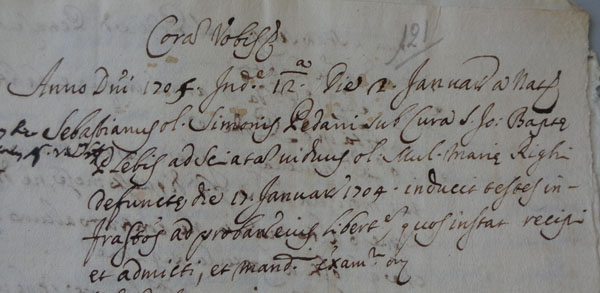 121
Corã Vobis
Anno Dni 1704. Inde 12a. Die 2. Januar a Nat
Sebastianus ol. Simonis Pedani sub Cura S. Jo: Bapte
Plebis ad Sciatã viduus ol. Mul. Marie Righi
defuncte die 17. Januar 1704. inducit testes in-
frastos ad proban eius libert quos instat recipi
et admicti, et mand. Exam